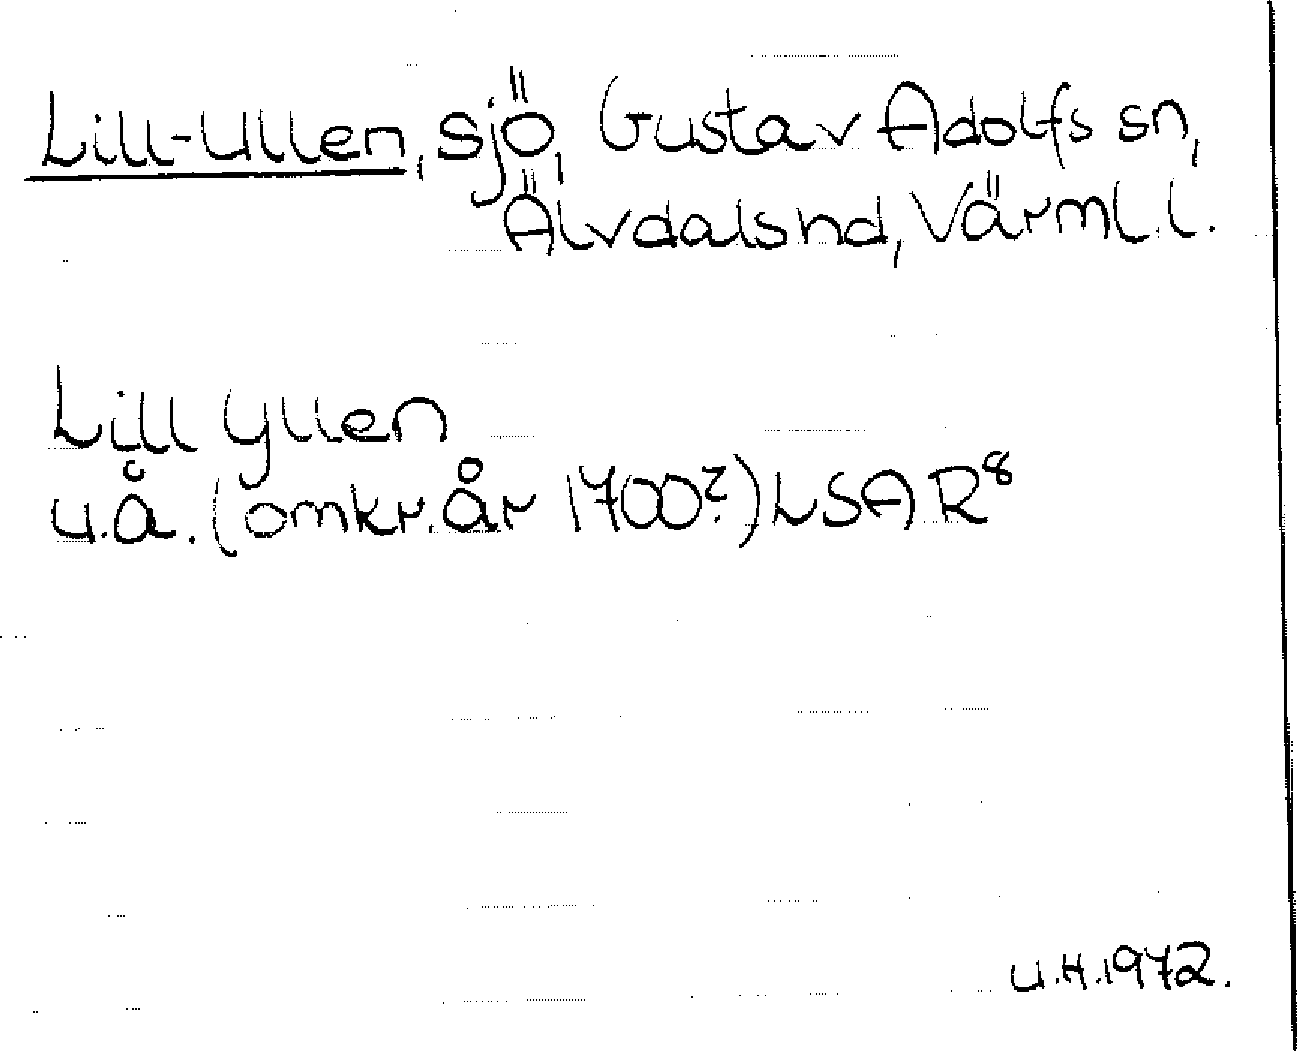 Lill-Ullen, sjö, Gustav Adolfs sn,
Älvdals hd, Värml. l.
Lill Yllen
u.å. (omkr. år 1700?) LSA R⁸
U.H. 1972.